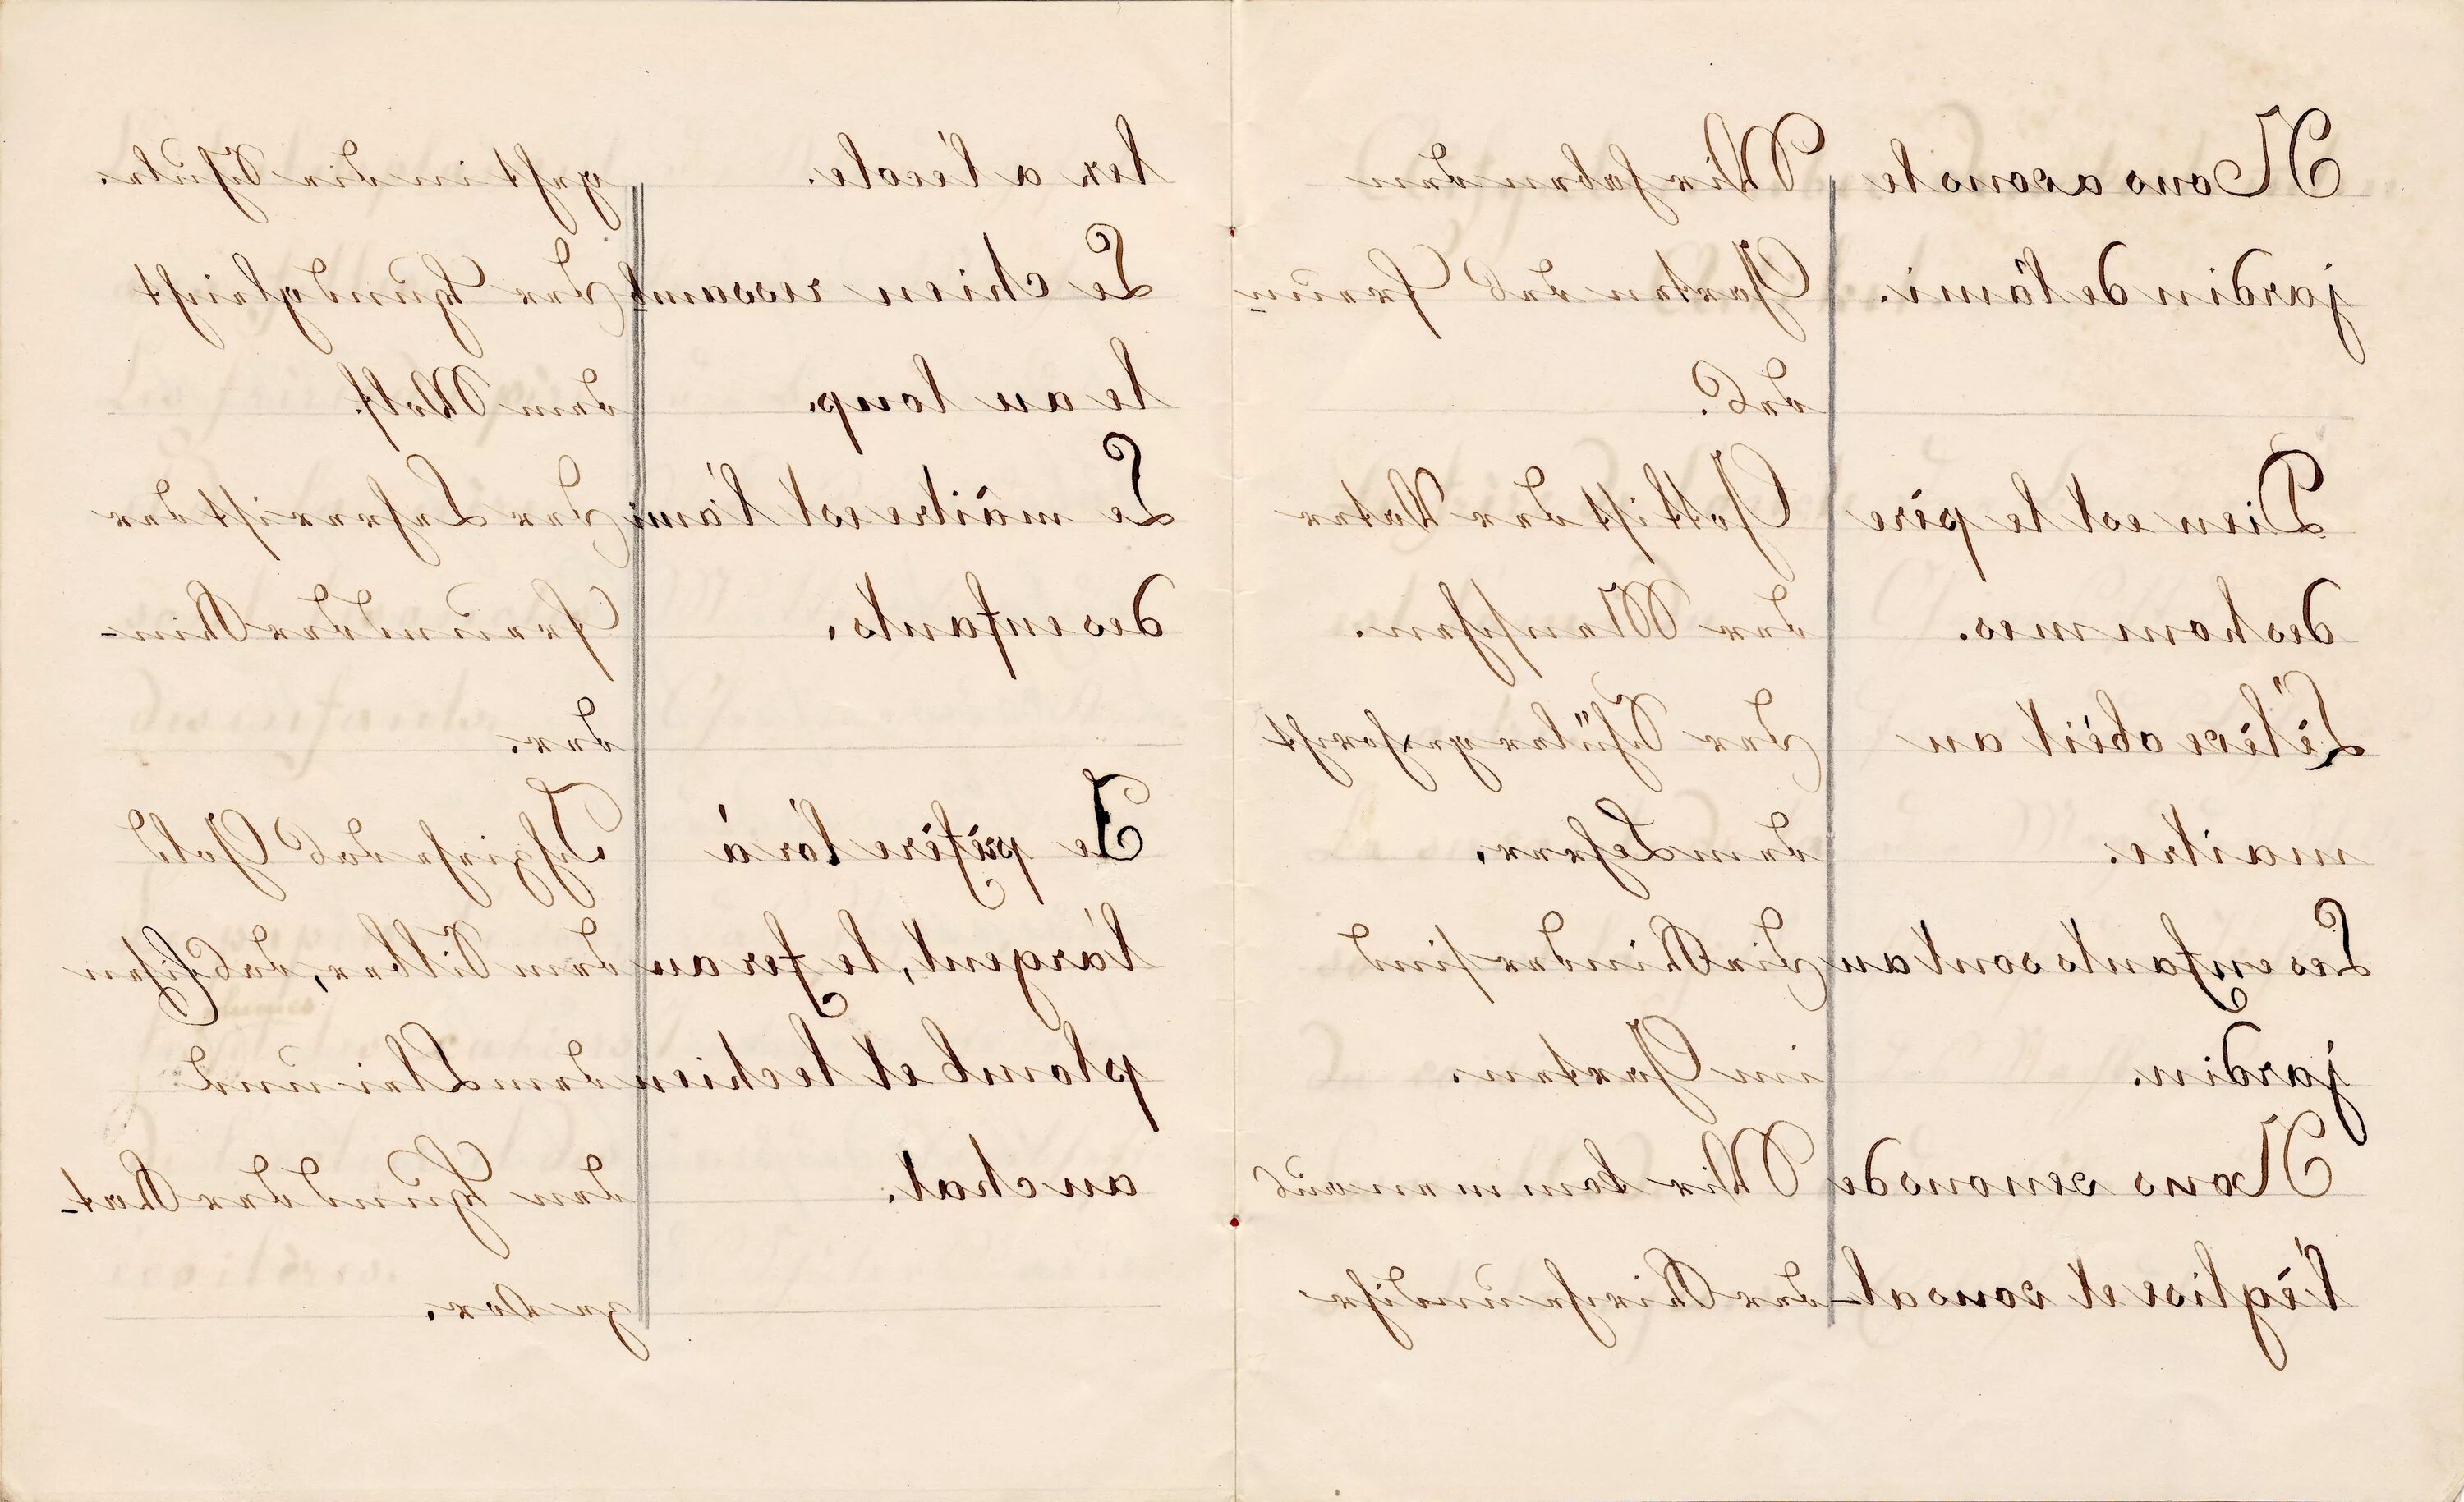 Nous avons le
jardin de l'ami.
Dieu est le père
des hommes.
L'éléve obéit au
maitre.
Les enfants sont au
jardin.
Nous venons de
l'église et vous al-
Wir haben den
Garten des Freun-
des.
Gott ist der Vater
der Menschen.
Der Schüler gehorcht
dem Lehrer.
Die Kinder sind
im Garten.
Wir kommen aus
der Kirche und ihr
lez a l'école.
Le chien ressamb-
le au loup.
Le maître est l'ami
des enfants.
Je préfére l'or á
l'argent, le fer au
plomb et le chien
au chat.
geht in die Schule.
Der Hund gleicht
dem Wolf.
Der Lehrer ist der
Freund der Kin-
der.
Ich ziehe das Gold
dem Silber, das Eisen
dem Blei und
den Hund der Kat-
ze vor.